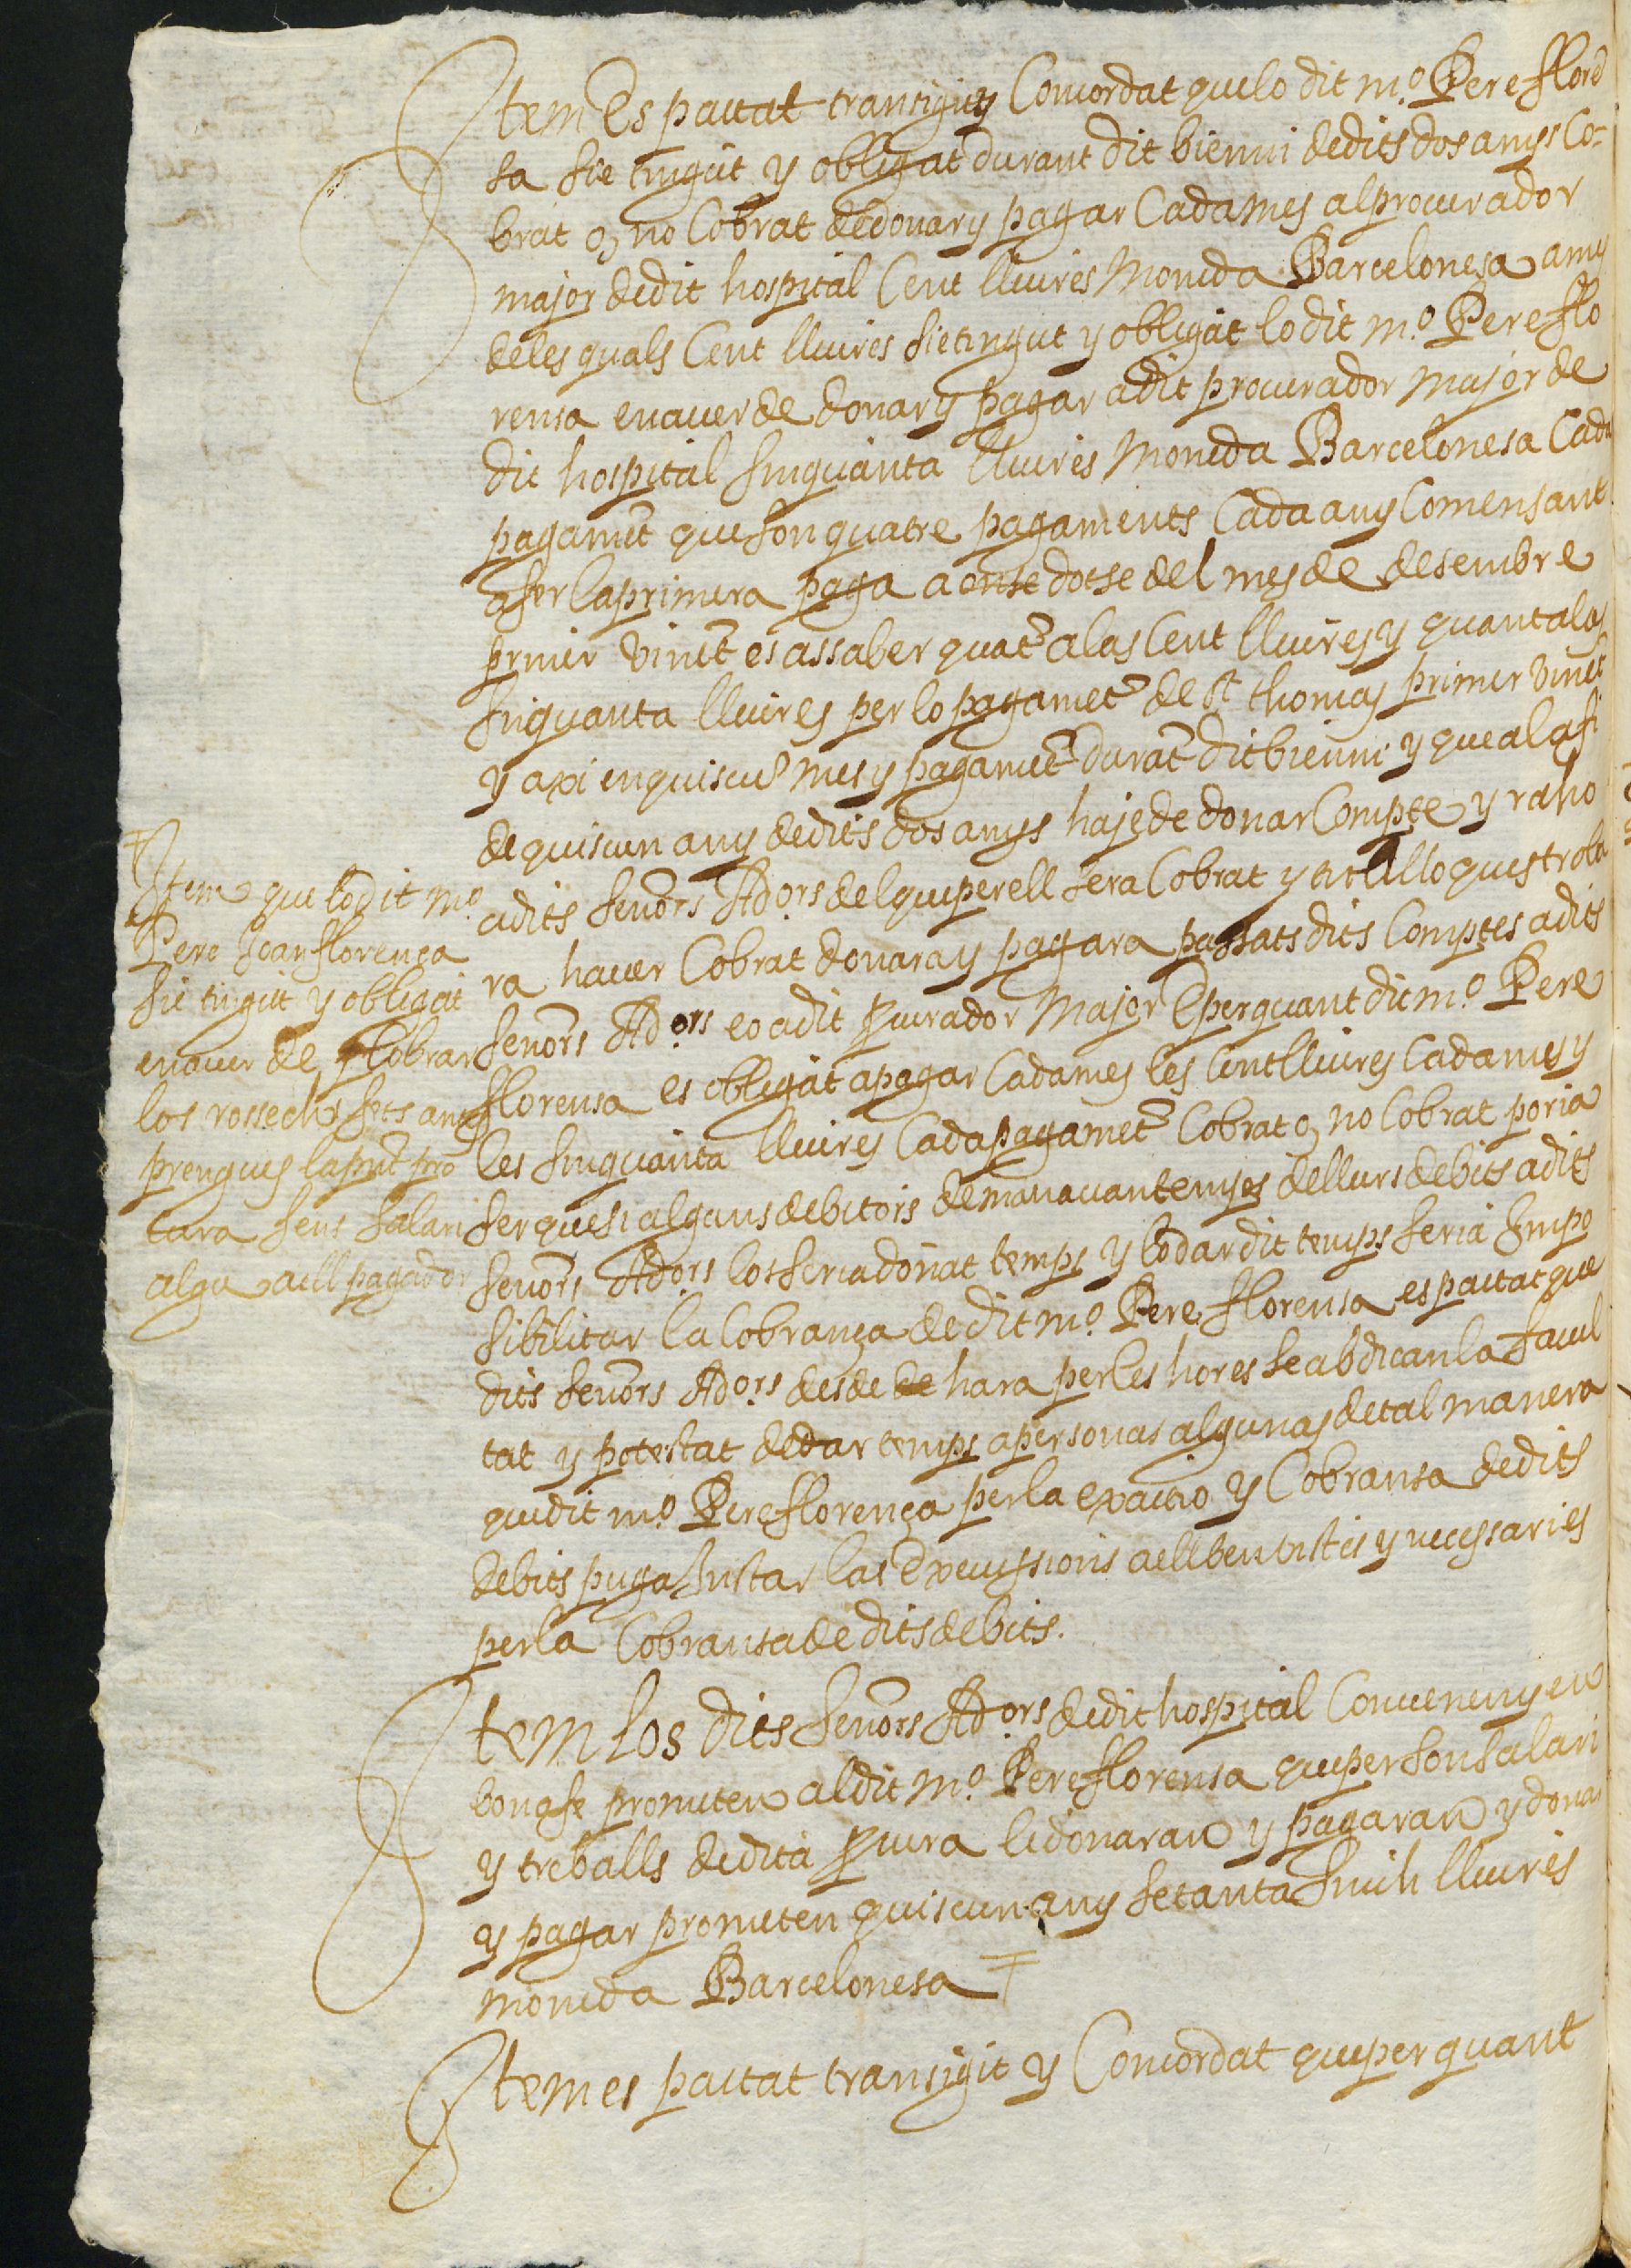 Item Es pactat transigit y Concordat que lo dit m.º Pere flore
sa sie tingut y obligat durant dit bienni de dits dos anys Co-
brat o, no Cobrat de donar y pagar Cada mes al procurador
major de dit hospital Cent lliures Moneda Barcelonesa a mes
de les quals Cent lliures sie tingut y obligat lo dit m.º Pere flo
rensa en aver de donar y pagar a dit procurador Major de
dit hospital sinquanta lliures Moneda Barcelonesa Cada
pagamet que son quatre pagaments Cada any Comensant
a fer la primera paga a onse dotse del mes de desembre
primer vinet es assaber quat a las Cent lliures y quant a las
sinquanta lliures per lo pagamet de st thomas primer vinet
y axi en quiscu mes y pagamet durat dit bienni y que a la fi
de quiscun any de dits dos anys haje de donar Compte y raho
a dits senors Ad.ors del que per ell sera Cobrat y tot allo ques troba
ra haver Cobrat donara y pagara passats dits Comptes a dits
senors Ad.ors eo a dit procurador Major E per quant dit m.º Pere
florensa es obligat a pagar Cada mes les Cent lliures Cada mes y
les sinquanta lliures Cada pagamet Cobrat o, no Cobrat poria
ser que si alguns debitors demanavan temps de llurs debits a dits
senors Ad.ors los seria donat temps y lo dar dit temps seria Impo
sibilitar la Cobrança de dit m.º Pere florensa es pactat que
dits senors Ad.ors des de hara per les hores se abdican la facul
tat y potestat de dar temps a personas algunas de tal manera
que dit m.º Pere florença per la exactio y Cobransa de dits
debits puga Instar las Execussions a ell ben vistes y necessaries
per la Cobransa de dits debits.
Item los dits senors Ad.ors de dit hospital Convenen y en
bona fe prometen al dit m.º Pere florensa que per son salari
y treballs de dita procura li donaran y pagaran y donar
y pagar prometen quiscun any setanta sinch lliures
moneda Barcelonesa
Item es pactat transigit y Concordat que per quant
Item que lo dit m.º
Pere Joan florença
sie tingut y obligat
en aver de Cobrar
los rossechs fets ans
prengues la pnt pro
cura sens salari
algu a ell pagador